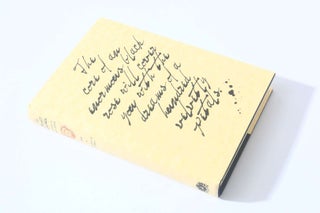 The
core of an
enormous black
rose will cover
you with the
dreams of a
hundred
velvety
petals